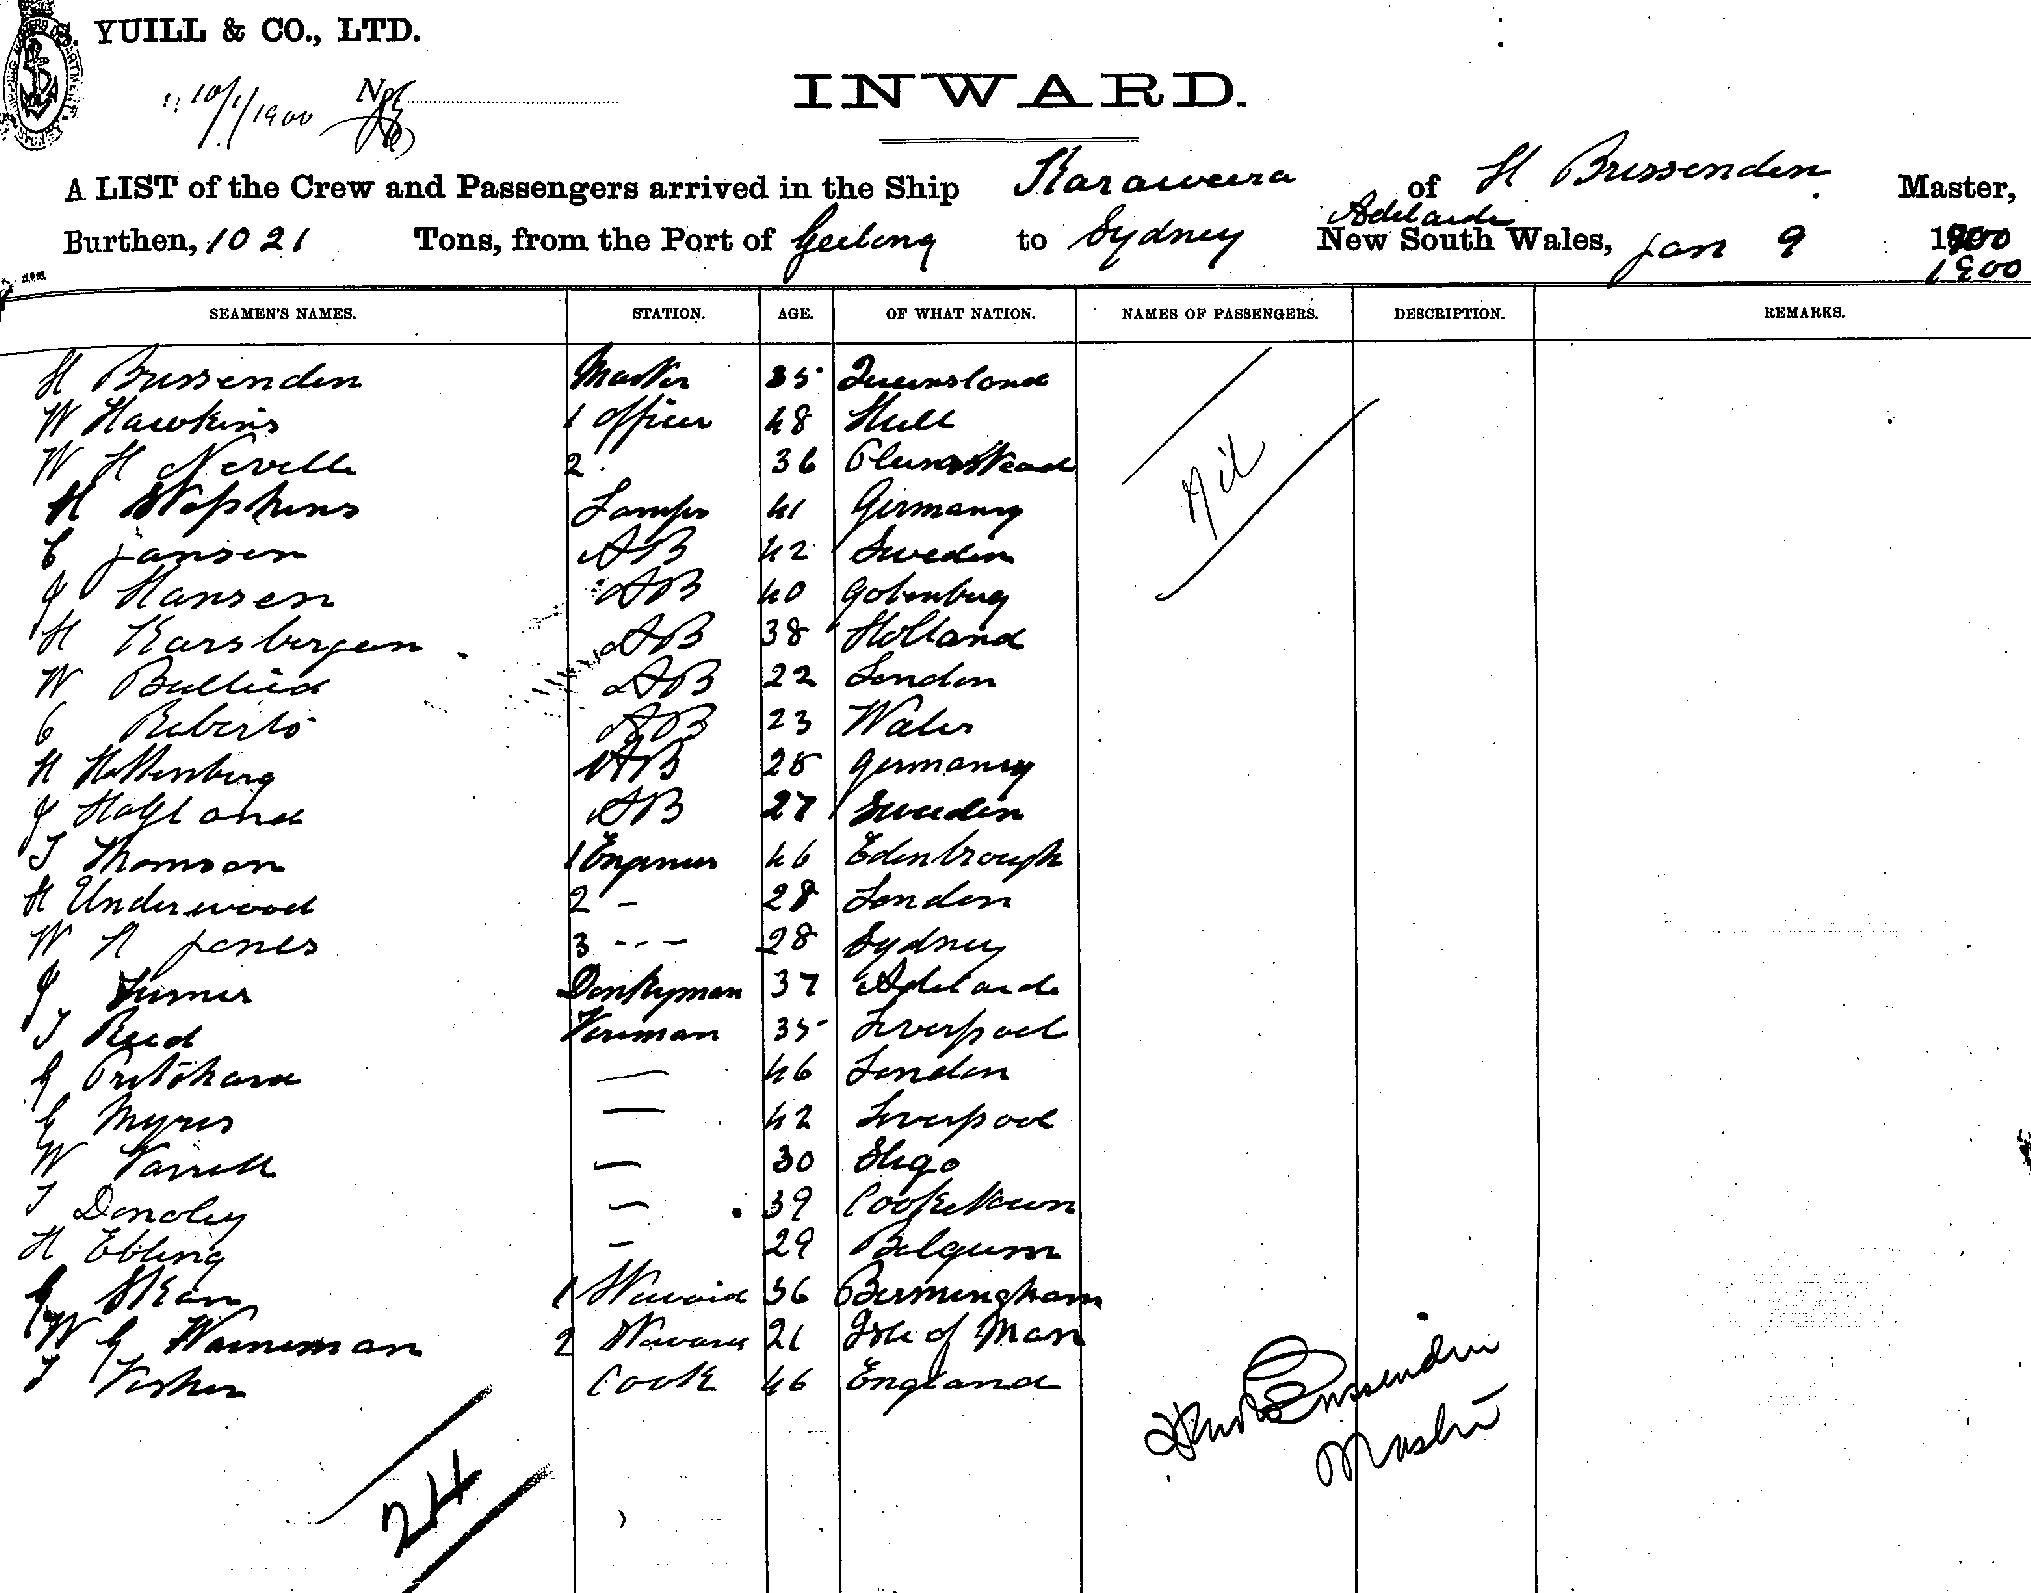 S. YUILL & CO., LTD.
10/1/1900
INWARD.
A LIST of the Crew and Passengers arrived in the Ship Karaweera of H Brussenden Master,
Burthen, 1021 Tons, from the Port of Geelong to Sydney Adelaide New South Wales, Jan 9 1900
1900
SEAMEN'S NAMES. STATION. AGE. OF WHAT NATION. NAMES OF PASSENGERS. DESCRIPTION. REMARKS.
H Brussenden Master 35 Queensland
W Hawkins 1 Officer 48 Hull
W H Neville 2 36 Plumstead
H Stephens Lamps 41 Germany Nil
C Jansen AB 42 Sweden
J Hansen AB 40 Gotenburg
H Karsbergen AB 38 Holland
W AB 22 London
C Roberts AB 23 Wales
H Hottenberg AB 28 Germany
J AB 27 Sweden
T Thomson 1 Engineer 46 Edenbrough
H Underwood 2 - 28 London
W H Jones 3 --- 28 Sydney
J Turner Donkyman 37 Adelaide
T Reed Fireman 35 Liverpool
G Pritchard — 46 London
G Myres — 42 Liverpool
W Farrell — 30 Sligo
T Donoley — 39 Cooketown
H Ebling - 29 Belgum
G 1 Steward 36 Birmingham
W G 2 Steward 21 Isle of Man
T Fisher Cook 46 England
Brussenden
Master
24